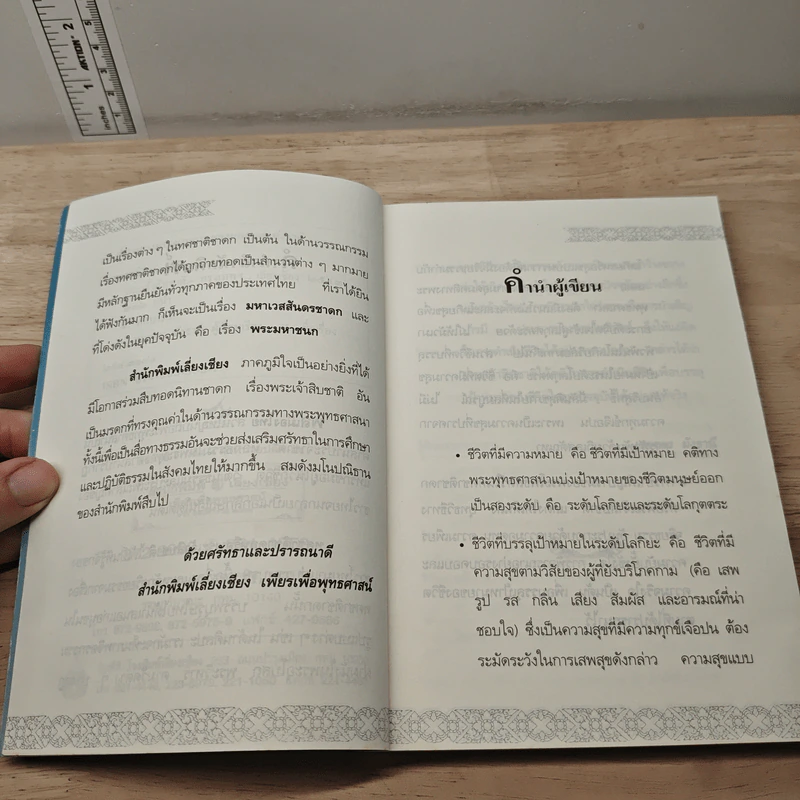 inches
1
2
AKTION
3
4
5
เป็นเรื่องต่าง ๆ ในทศชาติชาดก เป็นต้น ในด้านวรรณกรรม
เรื่องทศชาติชาดกได้ถูกถ่ายทอดเป็นสำนวนต่าง ๆ มากมาย
มีหลักฐานยืนยันทั่วทุกภาคของประเทศไทย ที่เราได้ยิน
ได้ฟังกันมาก ก็เห็นจะเป็นเรื่อง มหาเวสสันดรชาดก และ
ที่โด่งดังในยุคปัจจุบัน คือ เรื่อง พระมหาชนก
สำนักพิมพ์เลี่ยงเชียง ภาคภูมิใจเป็นอย่างยิ่งที่ได้
มีโอกาสร่วมสืบทอดนิทานชาดก เรื่องพระเจ้าสิบชาติ อัน
เป็นมรดกที่ทรงคุณค่าในด้านวรรณกรรมทางพระพุทธศาสนา
ทั้งนี้เพื่อเป็นสื่อทางธรรมอันจะช่วยส่งเสริมศรัทธาในการศึกษา
และปฏิบัติธรรมในสังคมไทยให้มากขึ้น สมดังมโนปณิธาน
ของสำนักพิมพ์สืบไป
ด้วยศรัทธาและปรารถนาดี
สำนักพิมพ์เลี่ยงเชียง เพียรเพื่อพุทธศาสน์
คำนำผู้เขียน
• ชีวิตที่มีความหมาย คือ ชีวิตที่มีเป้าหมาย คติทาง
พระพุทธศาสนาแบ่งเป้าหมายของชีวิตมนุษย์ออก
เป็นสองระดับ คือ ระดับโลกิยะและระดับโลกุตตระ
• ชีวิตที่บรรลุเป้าหมายในระดับโลกิยะ คือ ชีวิตที่มี
ความสุขตามวิสัยของผู้ที่ยังบริโภคกาม (คือ เสพ
รูป รส กลิ่น เสียง สัมผัส และอารมณ์ที่น่า
ชอบใจ) ซึ่งเป็นความสุขที่มีความทุกข์เจือปน ต้อง
ระมัดระวังในการเสพสุขดังกล่าว ความสุขแบบ